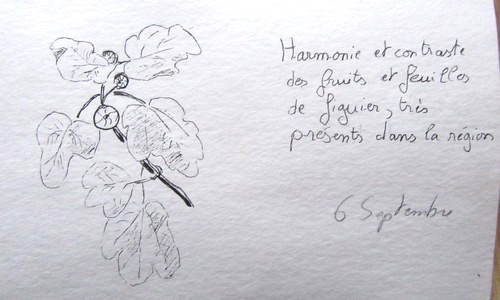 Harmonie et contraste
des fruits et feuilles
de figuier, très
présents dans la région
6 Septembre